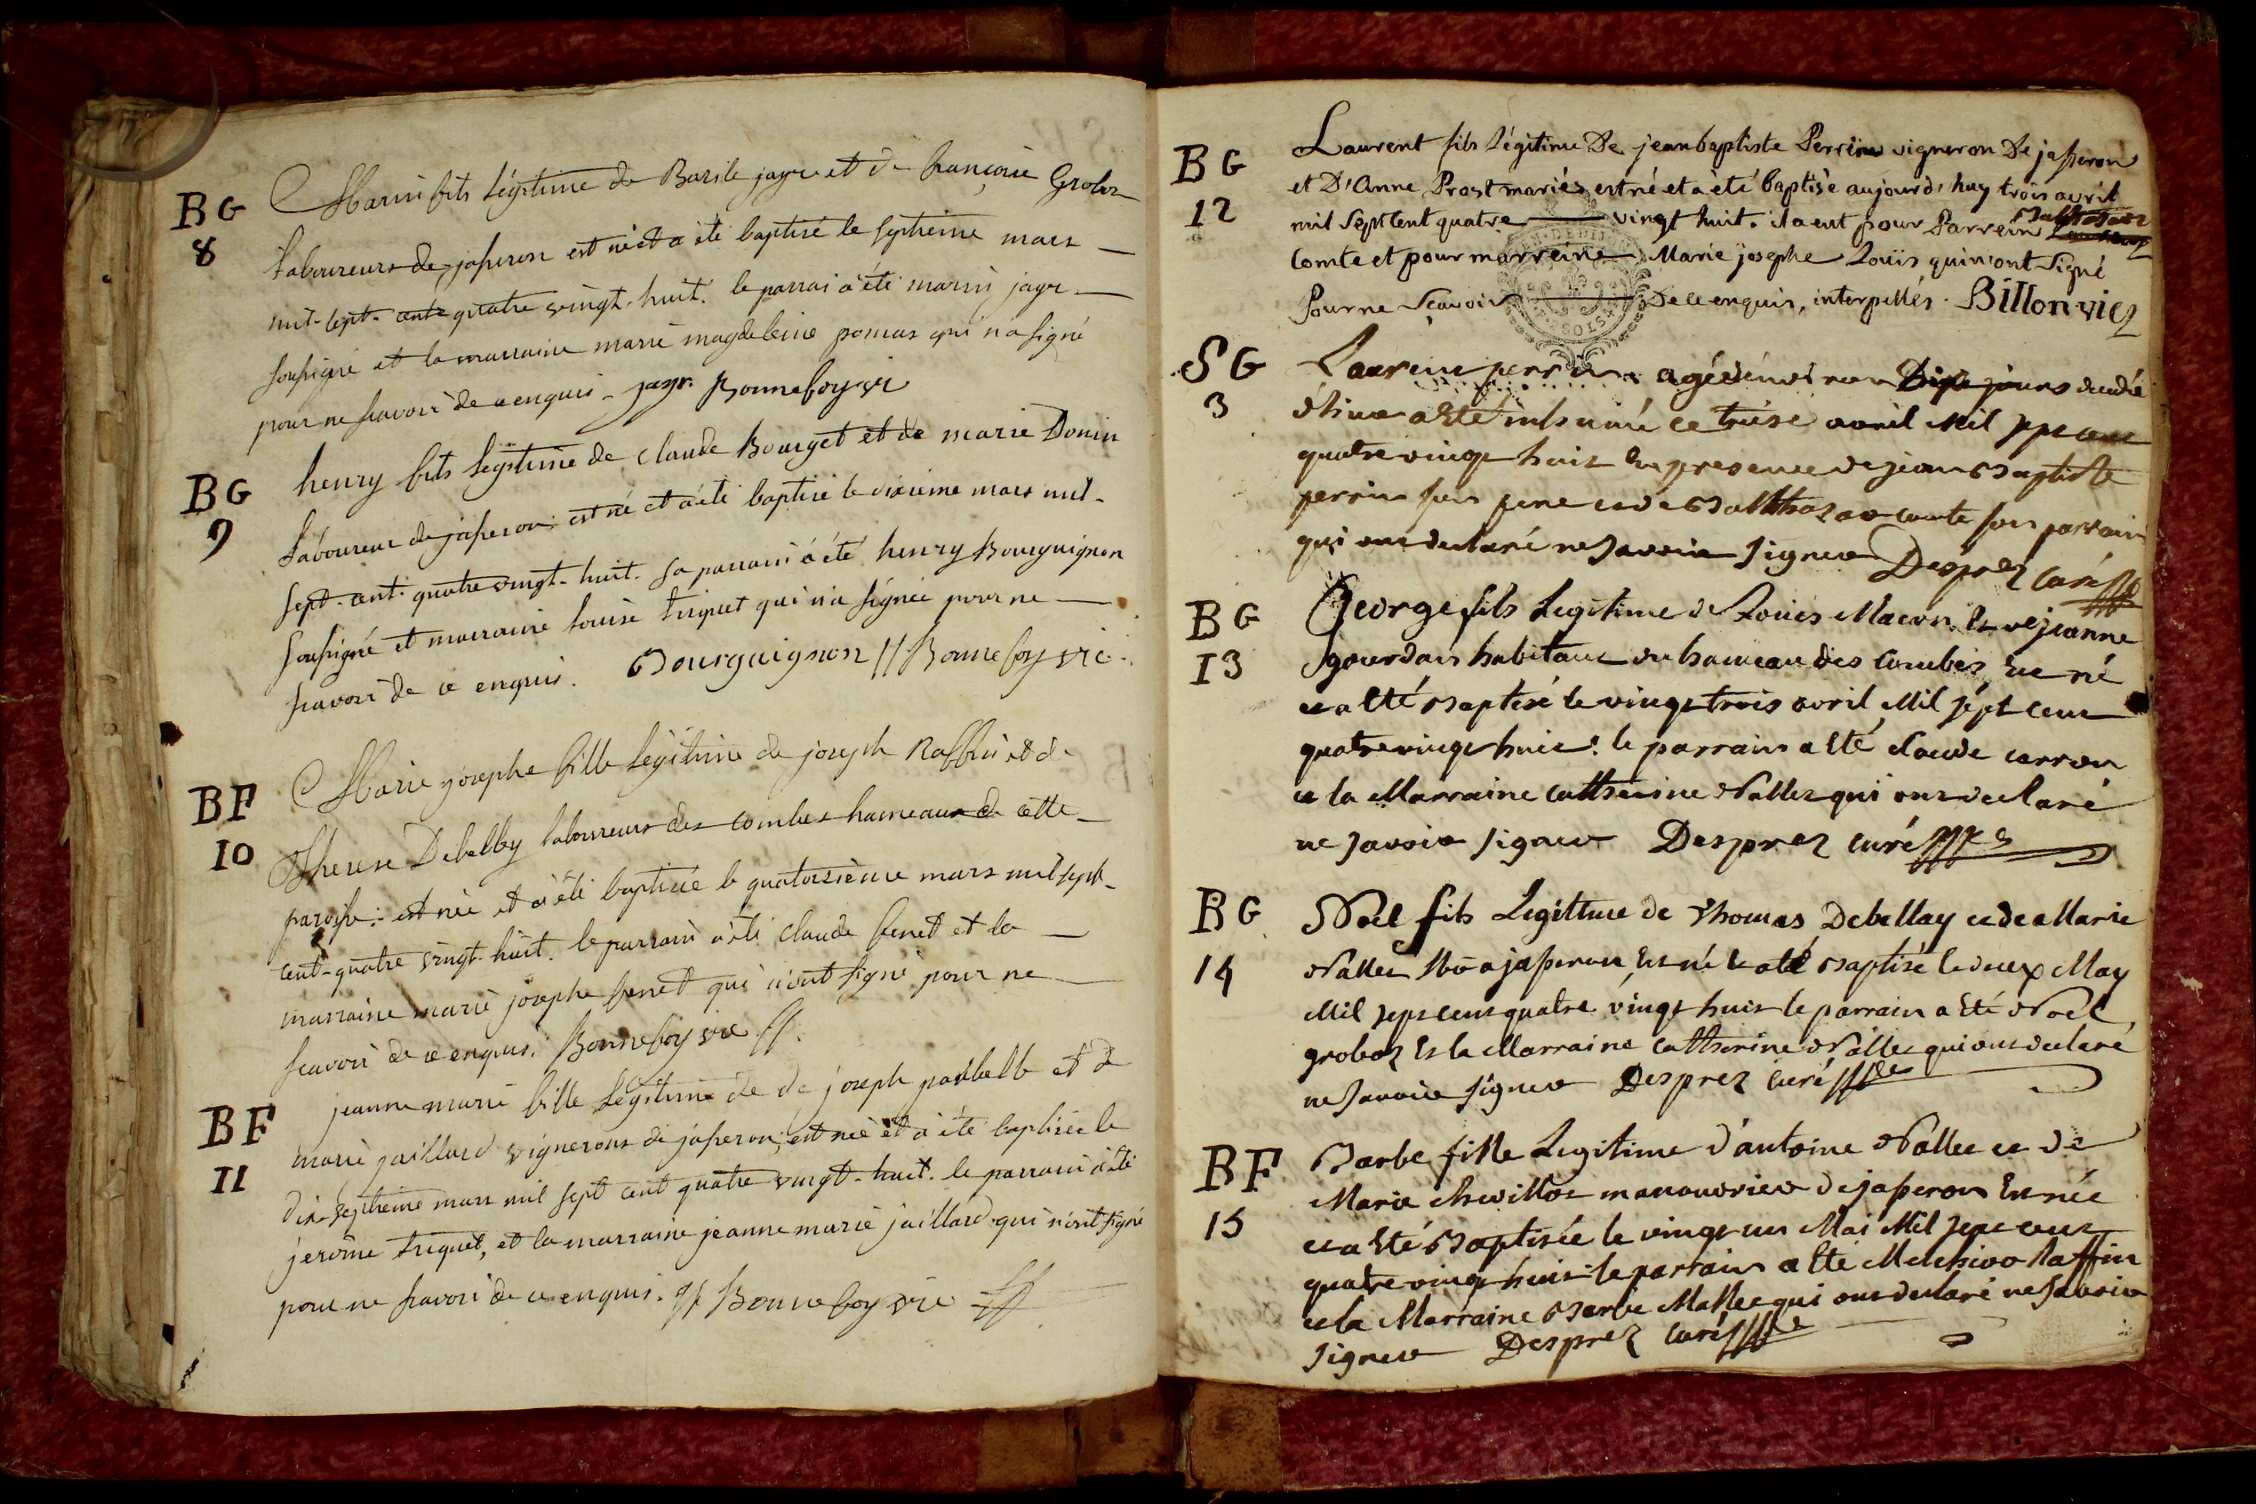 BG
8
Marin fils légitime de Basile jayr et de françoise Groboz
laboureurs de jasseron est né et a été baptisé le septieme mars
mil-sept-cents quatre vingt-huit. le parrai a été marin jayr
soussigné et la marraine marie magdeleine pomar qui n'a signé
pour ne scavoir de ce enquis. jayr. Bonnefoy vic
BG
9
henry fils légitime de claude Bourget et de marie Donin
laboureur de jasseron est né et a été baptisé le dixieme mars mil-
sept-cent-quatre vingt-huit. sa parrain a été henry Bourguignon
soussigné et marraine louise triquet qui n'a signée pour ne
scavoir de ce enquis. Bourguignon // Bonnefoy vic.
BF
10
Marie josephe fille légitime de joseph Raffin et de
Therese Debelley laboureurs des combes hameaux de cette
paroisse: est née et a été baptisée le quatorsieme mars mil sept-
cent-quatre vingt-huit. le parrain a été claude fenet et la
marraine marie josephe fenet qui n'ont signé pour ne
scavoir de ce enquis. Bonnefoy vic
BF
11
jeanne marie fille légitime de de joseph
marie jaillard vignerons de jasseron; est née et a été baptisée le
dix-septieme mars mil sept cent quatre vingt-huit. le parrain a été
jerome triquet, et la marraine jeanne marie jaillard qui n'ont signé
pour ne scavoir de ce enquis. Bonnefoy vic
BG
12
Laurent fils légitime De jean baptiste Perrin vigneron De jasseron
et D'Anne Prost mariés est né et a été baptisé aujourd'huy trois avril
mil Sept Cent quatre vingt huit. il a eut pour Parrein Balthazar
Comte et pour marreine Marie josephe Loüis qui n'ont Signé
Pour ne Sçavoir De ce enquis, interpellés. Billon vic
SG
3
Laurent perrin agé denviron Dix jours decedé
d'hier a Eté inhumé ce treise avril Mil sept cent
quatre vingt huit En presence de jean Baptiste
perrin son pere et de Balthazar comte son parrain
qui ont declaré ne Savoir Signer Desprez curé
BG
13
George fils Legitime de Loüis Macon Et de jeanne
gourdan habitant du hameau des Combes Est né
et a Eté Baptisé le vingt trois avril Mil sépt cent
quatre vingt huit: le parrain a Eté claude carron
et la Marraine Catherine Nallet qui ont declaré
ne Savoir Signer Desprez curé
BG
14
Noel fils Legitime de Thomas Debellay et de Marie
Nallet a jasseron Est né Et a Eté Baptisé le deux May
Mil sept cent quatre vingt huit le parrain a Eté Noel
groboz Et la Marraine Catherine Nallet qui ont declaré
ne Savoir Signer Desprez Curé
BF
15
Barbe fille Legitime d'antoine Nallet et de
Marie Chevillor manouvrier de jasseron Est née
et a Eté Baptisée le vingt un Mai Mil sept cent
quatre vingt huit: le parrain a Eté Melchior Raffin
et la Marraine Barbe Mallet qui ont declaré ne Savoir
Signer Desprez curé